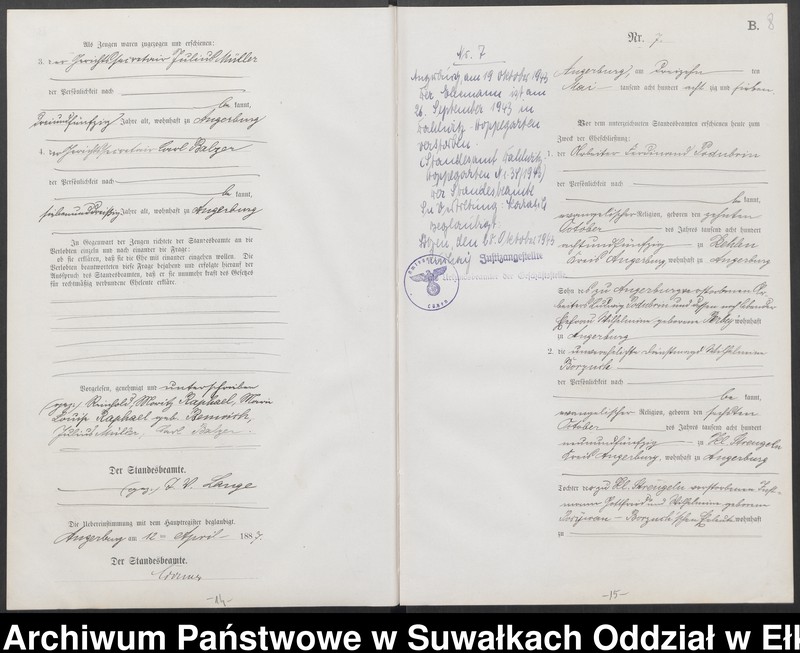 Als Zeugen waren zugezogen und erschienen:
3. der Gerichtssecretair Julius Müller
der Persönlichkeit nach
be kannt,
dreiundfünfzig Jahre alt, wohnhaft zu Angerburg
4. der Gerichtssecretair Carl Balzer
der Persönlichkeit nach
be kannt,
siebenunddreißig Jahre alt, wohnhaft zu Angerburg
In Gegenwart der Zeugen richtete der Standesbeamte an die
Verlobten einzeln und nach einander die Frage:
ob sie erklären, daß sie die Ehe mit einander eingehen wollen. Die
Verlobten beantworteten diese Frage bejahend und erfolgte hierauf der
Ausspruch des Standesbeamten, daß er sie nunmehr kraft des Gesetzes
für rechtmäßig verbundene Eheleute erkläre.
Vorgelesen, genehmigt und unterschrieben
(gez.) Reinhold Moritz Raphael, Marie
Louise Raphael geb.
Julius Müller, Carl Balzer.
Der Standesbeamte.
(gez.) I. V. Lange
Die Uebereinstimmung mit dem Hauptregister beglaubigt.
Angerburg am 12ten April 1887.
Der Standesbeamte.
-14-
B. 8
Nr. 7
Nr. 7
Angerburg, am 19 Oktober 1943
Der Ehemann ist am
26. September 1943 in
Dahlwitz-Hoppegarten
verstorben
(Standesamt Dahlwitz-
Hoppegarten Nr. 38/1943)
Der Standesbeamte
In Vertretung:
Beglaubigt
den 28. Oktober 1943
Justizangestellte
als Urkundsbeamter der Geschäftsstelle
Angerburg, am dreizehnten
Mai tausend acht hundert acht zig und sieben.
Vor dem unterzeichneten Standesbeamten erschienen heute zum
Zweck der Eheschließung:
1. der Arbeiter Ferdinand
der Persönlichkeit nach
be kannt,
evangelischer Religion, geboren den zehnten
October des Jahres tausend acht hundert
achtundfünfzig zu
Kreis Angerburg, wohnhaft zu Angerburg
Sohn des zu Angerburg verstorbenen Ar-
beiters Ludwig und dessen
Ehefrau Wilhelmine geborene wohnhaft
zu Angerburg
2. die unverehelichte Dienstmagd Wilhelmine
der Persönlichkeit nach
be kannt,
evangelischer Religion, geboren den sechsten
October des Jahres tausend acht hundert
neunundfünfzig zu Kl. Strengeln
Kreis Angerburg, wohnhaft zu Angerburg
Tochter der zu Kl. Strengeln verstorbenen
und Wilhelmine geborene
Eheleute wohnhaft
zu
-15-
Archiwum Państwowe w Suwałkach Oddział w Ełk